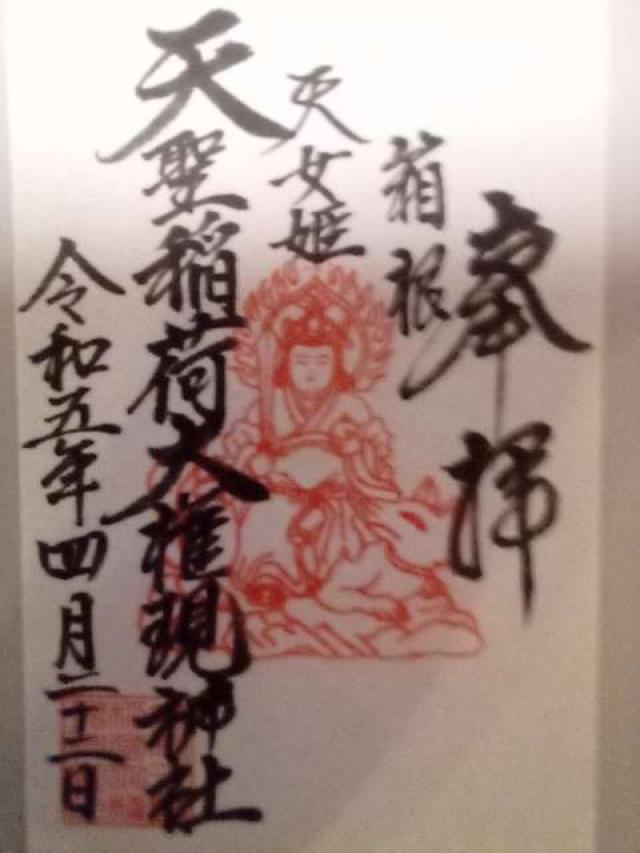 奉拝
箱根
天女姫
天聖稲荷大権現神社
令和五年四月二十二日